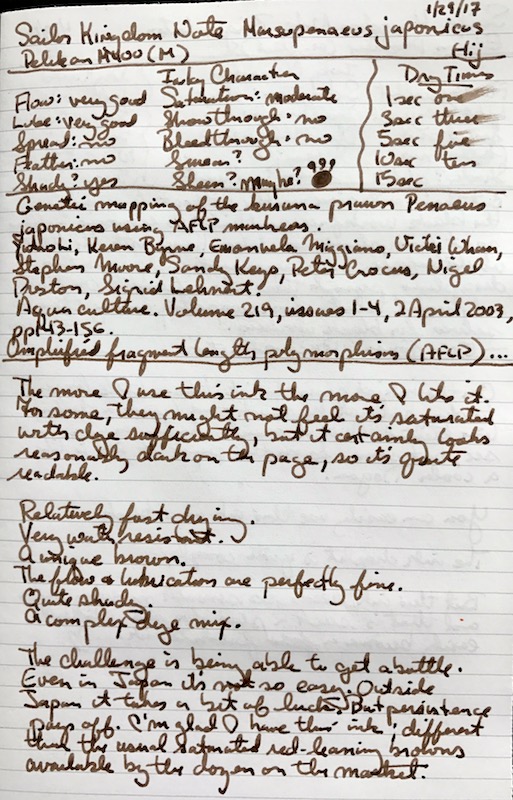 1/29/17
Sailor Kingdom Note Marsupenaeus japonicus
Pelikan M400 (M) Hij
Inky Character Dry Times
Flow: very good Saturation: moderate 1sec one
Lube: very good Showthrough: no 3sec three
Spread: no Bleedthrough: no 5sec five
Feather: no Smear? 10sec ten
Shady? yes Sheen? maybe? ??? 15sec
Genetic mapping of the kuruma prawn Penaeus
japonicus using AFLP markers.
Keren Byrne, Emanuela Miggiano, Vicki Whan,
Stephen Moore, Sandy Keys, Peter Crocos, Nigel
Preston, Sigrid Lehnert.
Aquaculture. Volume 219, issues 1-4, 2 April 2003,
pp143-156.
Amplified fragment length polymorphism (AFLP)...
The more I use this ink the more I like it.
For some, they might not feel it's saturated
with dye sufficiently, but it certainly looks
reasonably dark on the page, so it's quite
readable.
Relatively fast drying.
Very water resistant.
A unique brown.
The flow & lubrication are perfectly fine.
Quite shady.
A complex dye mix.
The challenge is being able to get a bottle.
Even in Japan it's not so easy. Outside
Japan it takes a bit of luck. But persistence
pays off. I'm glad I have this ink; different
than the usual saturated red-leaning browns
available by the dozen on the market.